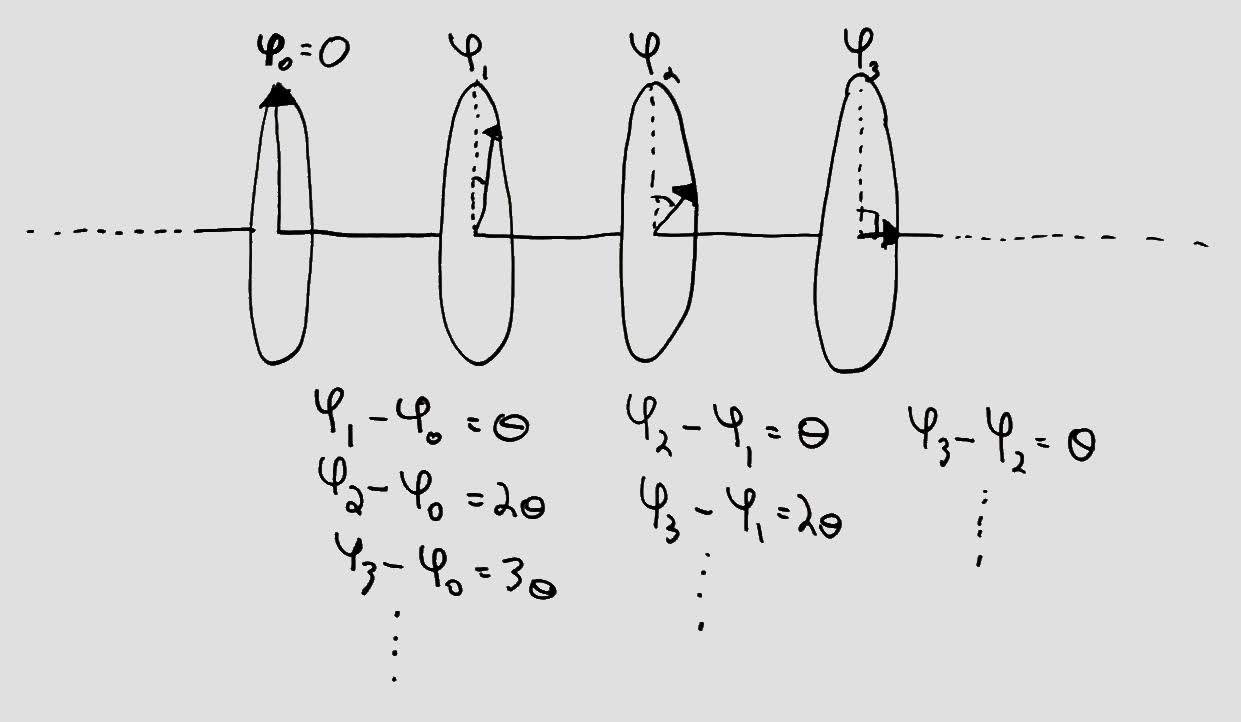 φ₀=0 φ₁ φ₂ φ₃
φ₁-φ₀ = θ φ₂-φ₁ = θ φ₃-φ₂ = θ
φ₂-φ₀ = 2θ φ₃-φ₁ = 2θ
φ₃-φ₀ = 3θ